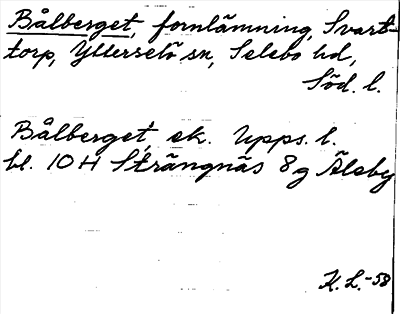 Bålberget, fornlämning, Svart-
torp, Ytterselö sn, Selebo hd,
Söd. l.
Bålberget, ek. Upps. l.
bl. 10 H Strängnäs 8 g Älsby
K. L. -58